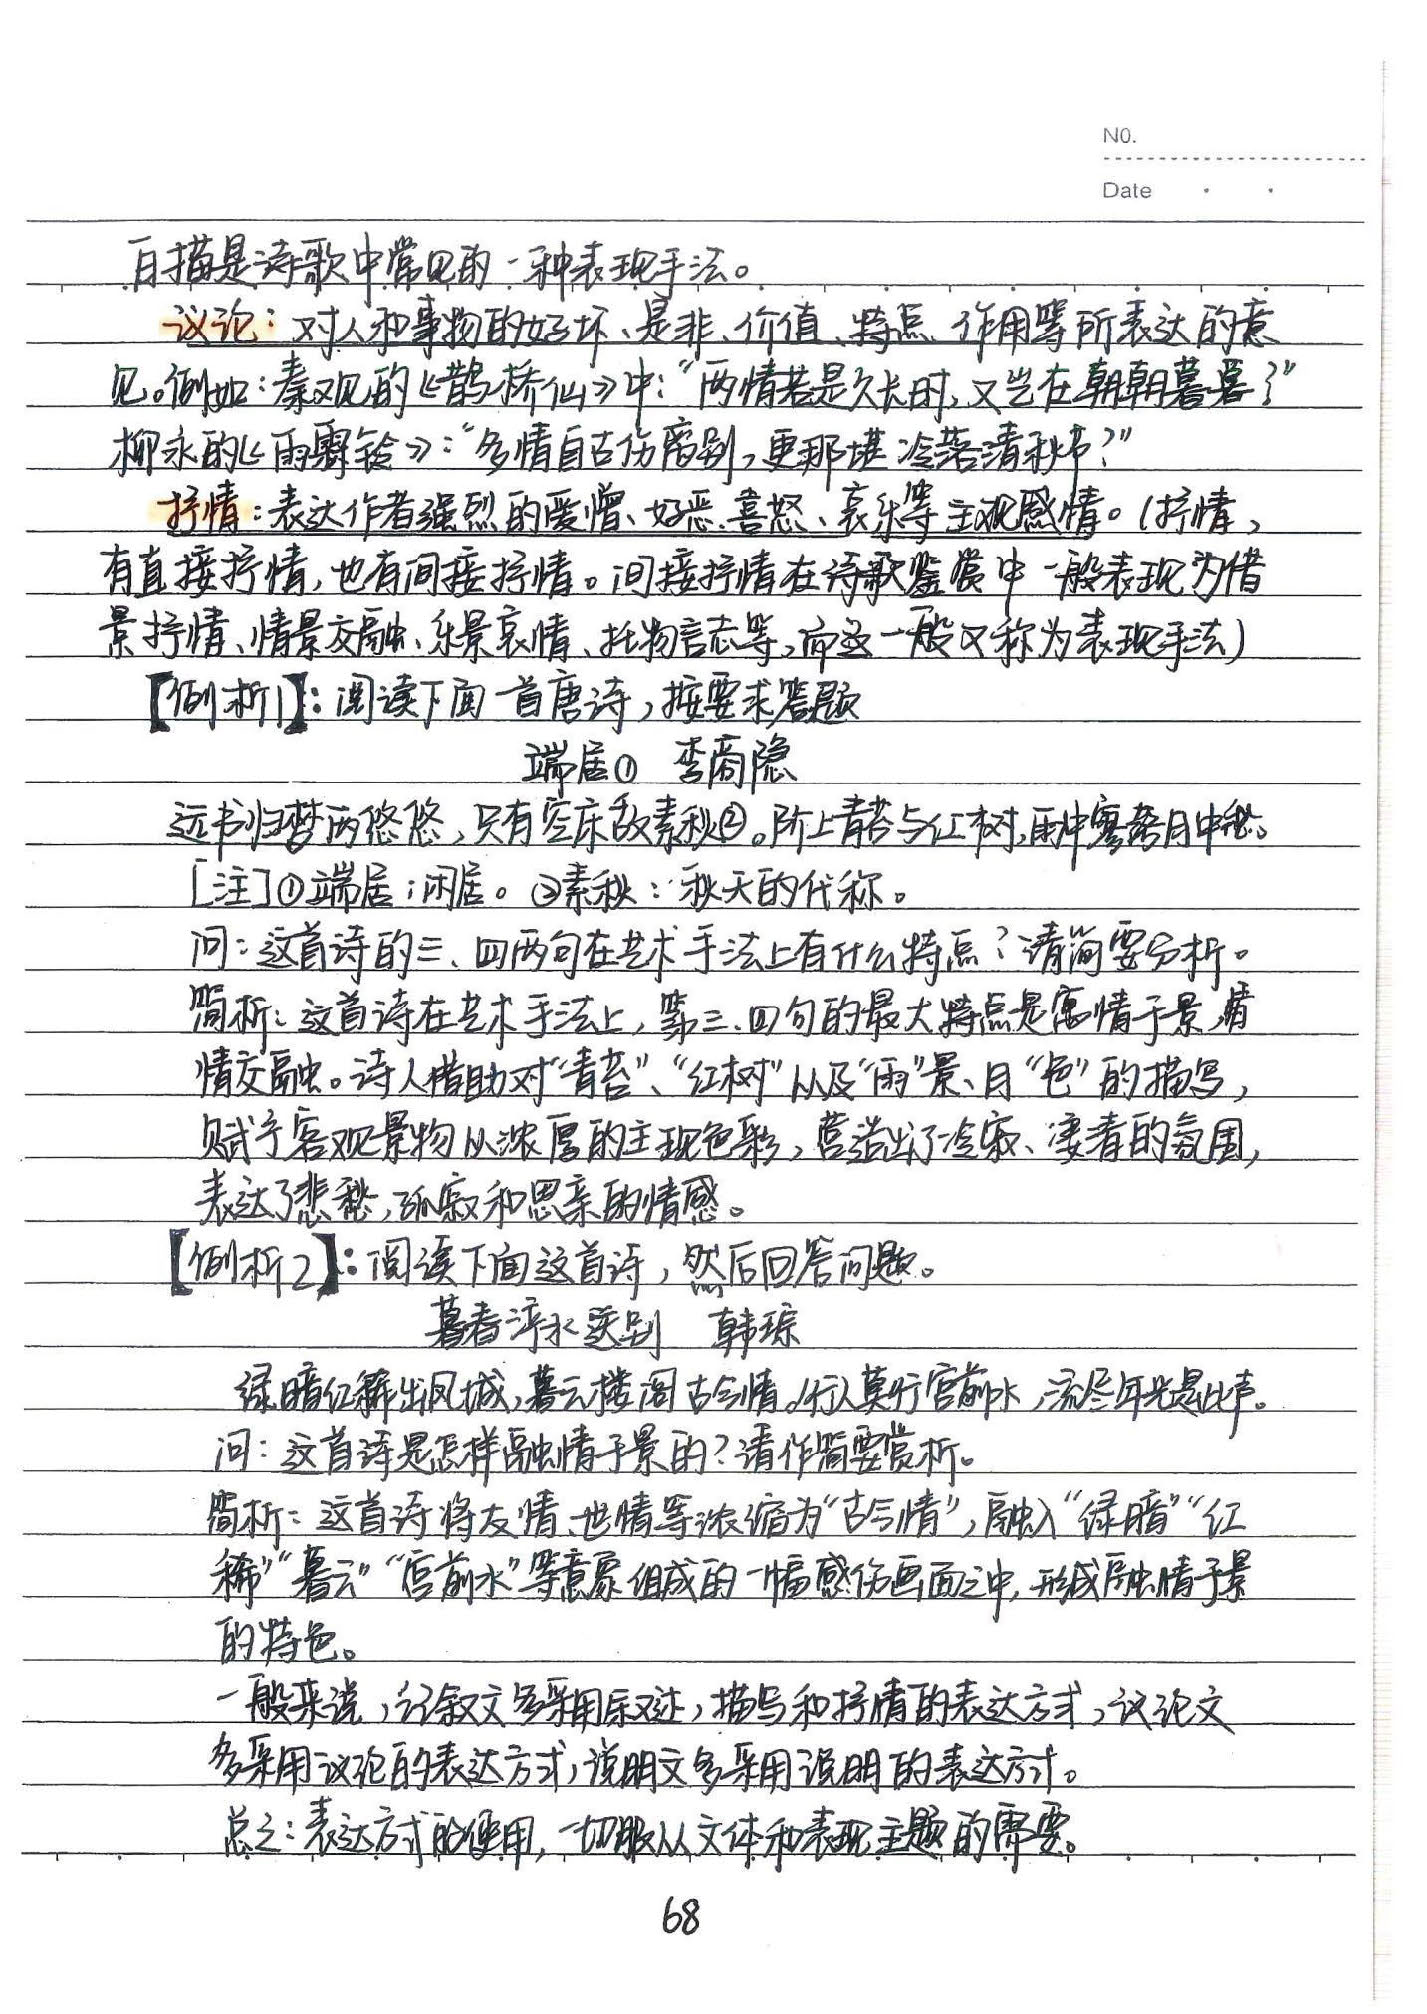 NO.
Date
白描是诗歌中常见的一种表现手法。
议论：对人和事物的好坏、是非、价值、特点、作用等所表达的意
见。例如：秦观的《鹊桥仙》中："两情若是久长时，又岂在朝朝暮暮？"
柳永的《雨霖铃》："多情自古伤离别，更那堪冷落清秋节？"
抒情：表达作者强烈的爱憎、好恶、喜怒、哀乐等主观感情。（抒情，
有直接抒情，也有间接抒情。间接抒情在诗歌鉴赏中一般表现为借
景抒情、情景交融、乐景哀情、托物言志等，而这一般又称为表现手法）
【例析1】：阅读下面一首唐诗，按要求答题
端居① 李商隐
远书归梦两悠悠，只有空床敌素秋②。阶上青苔与红树，雨中寥落月中愁。
[注]①端居：闲居。②素秋：秋天的代称。
问：这首诗的三、四两句在艺术手法上有什么特点？请简要分析。
简析：这首诗在艺术手法上，第三、四句的最大特点是寓情于景，情
情交融。诗人借助对"青苔"、"红树"以及"雨"景、月"色"的描写，
赋予客观景物以浓厚的主观色彩，营造出了冷寂、凄清的氛围，
表达了悲愁，孤寂和思亲的情感。
【例析2】：阅读下面这首诗，然后回答问题。
暮春浐水送别 韩琮
绿暗红稀出凤城，暮云楼阁古今情。行人莫听宫前水，流尽年光是此声。
问：这首诗是怎样融情于景的？请作简要赏析。
简析：这首诗将友情、世情等浓缩为"古今情"，融入"绿暗""红
稀""暮云""宫前水"等意象组成的一幅感伤画面之中，形成融情于景
的特色。
一般来说，记叙文多采用叙述，描写和抒情的表达方式，议论文
多采用议论的表达方式，说明文多采用说明的表达方式。
总之：表达方式的使用，一切服从文体和表现主题的需要。
68